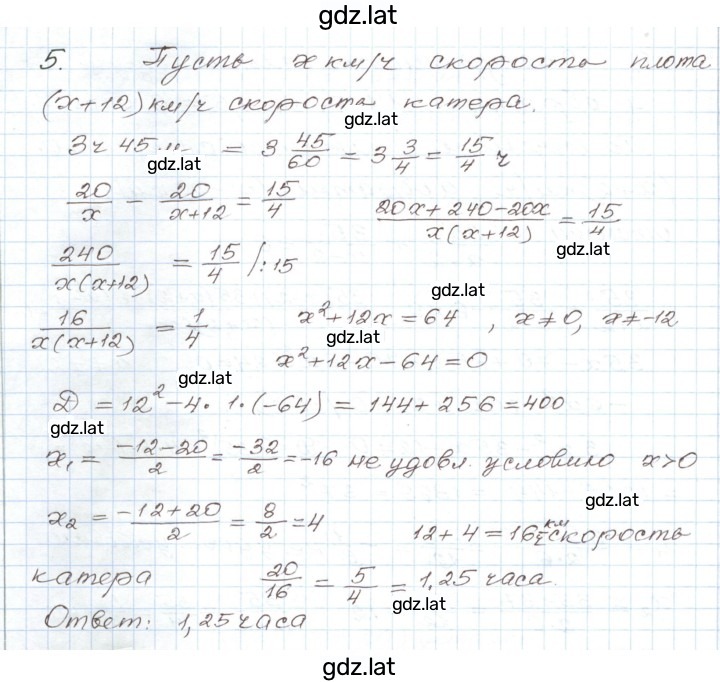 gdz.lat
5. Пусть x км/ч скорость плота
(x+12) км/ч скорость катера.
gdz.lat
3ч 45 м = 3 45/60 = 3 3/4 = 15/4 ч
gdz.lat
20/x − 20/(x+12) = 15/4    (20x+240−20x)/(x(x+12)) = 15/4
gdz.lat
240/(x(x+12)) = 15/4 /:15
gdz.lat
16/(x(x+12)) = 1/4    x²+12x=64 , x≠0, x≠−12
gdz.lat
x²+12x−64=0
gdz.lat
D = 12²−4·1·(−64) = 144+256=400
gdz.lat
x₁ = (−12−20)/2 = −32/2 = −16 не удовл. условию x>0
gdz.lat
x₂ = (−12+20)/2 = 8/2 = 4    12+4=16 км/ч скорость
катера    20/16 = 5/4 = 1,25 часа.
gdz.lat
Ответ: 1,25 часа
gdz.lat